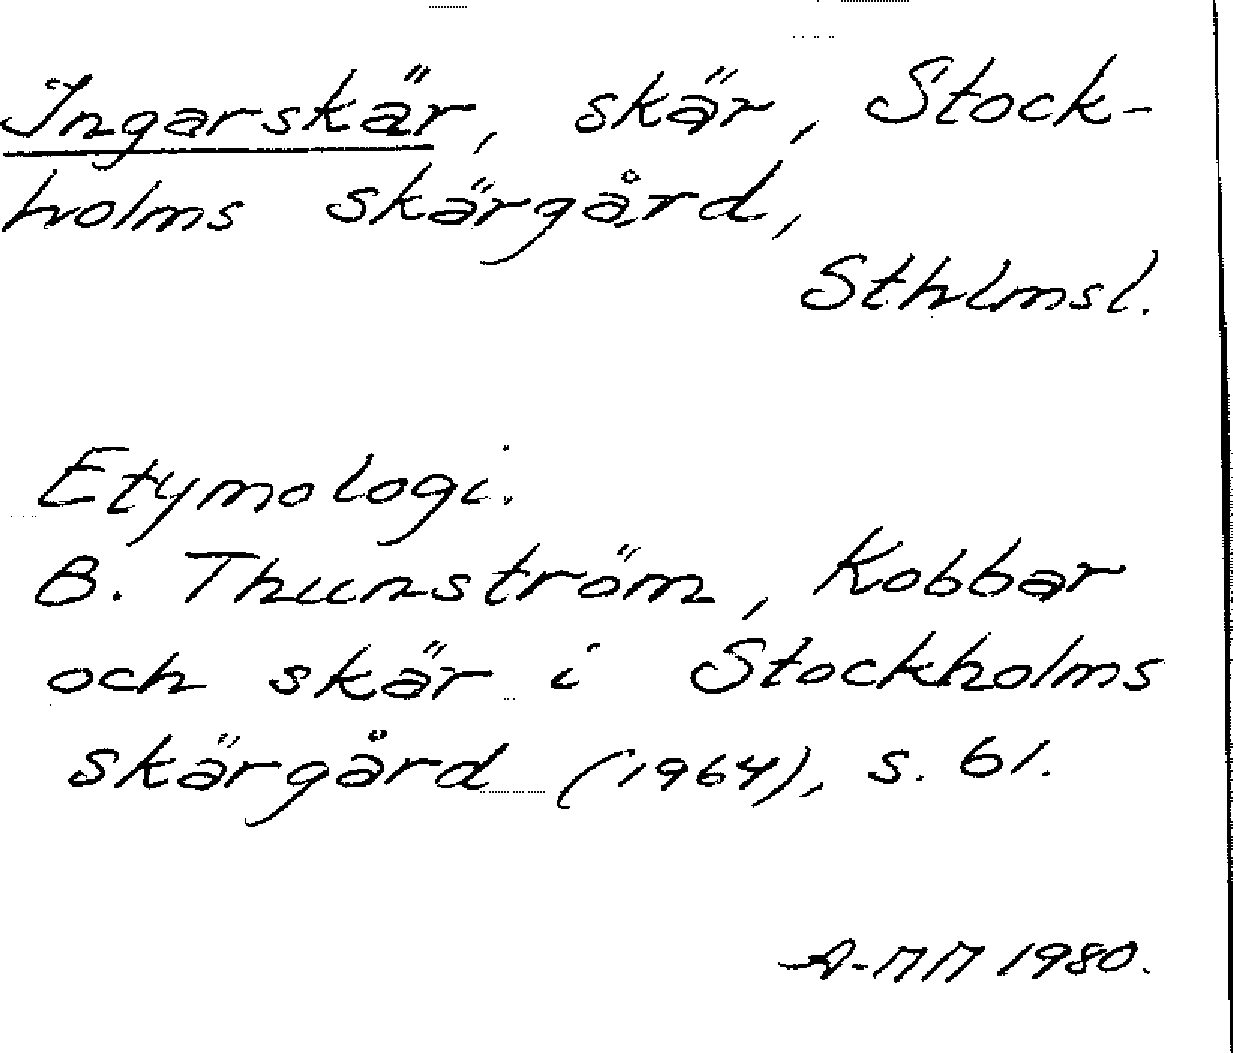 Ingarskär, skär, Stock-
holms skärgård,
Sthlmsl.
Etymologi.
B. Thunström, Kobbar
och skär i Stockholms
skärgård (1964), s. 61.
A-MM 1980.